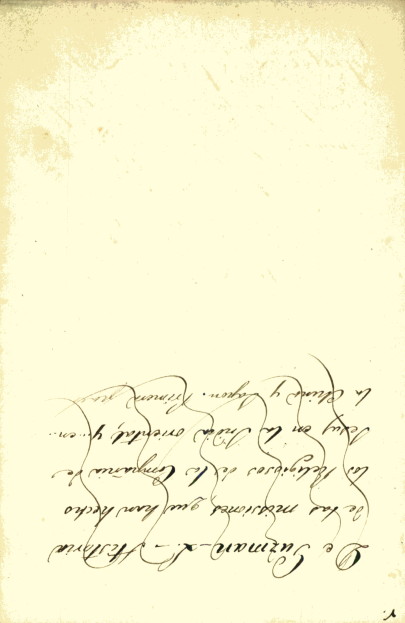 De Guzman - L. - Historia
de las missiones, que han hecho
los Religiosos de la Compañia de
Jesus en la India oriental, y en..
la China y Japon. Primera